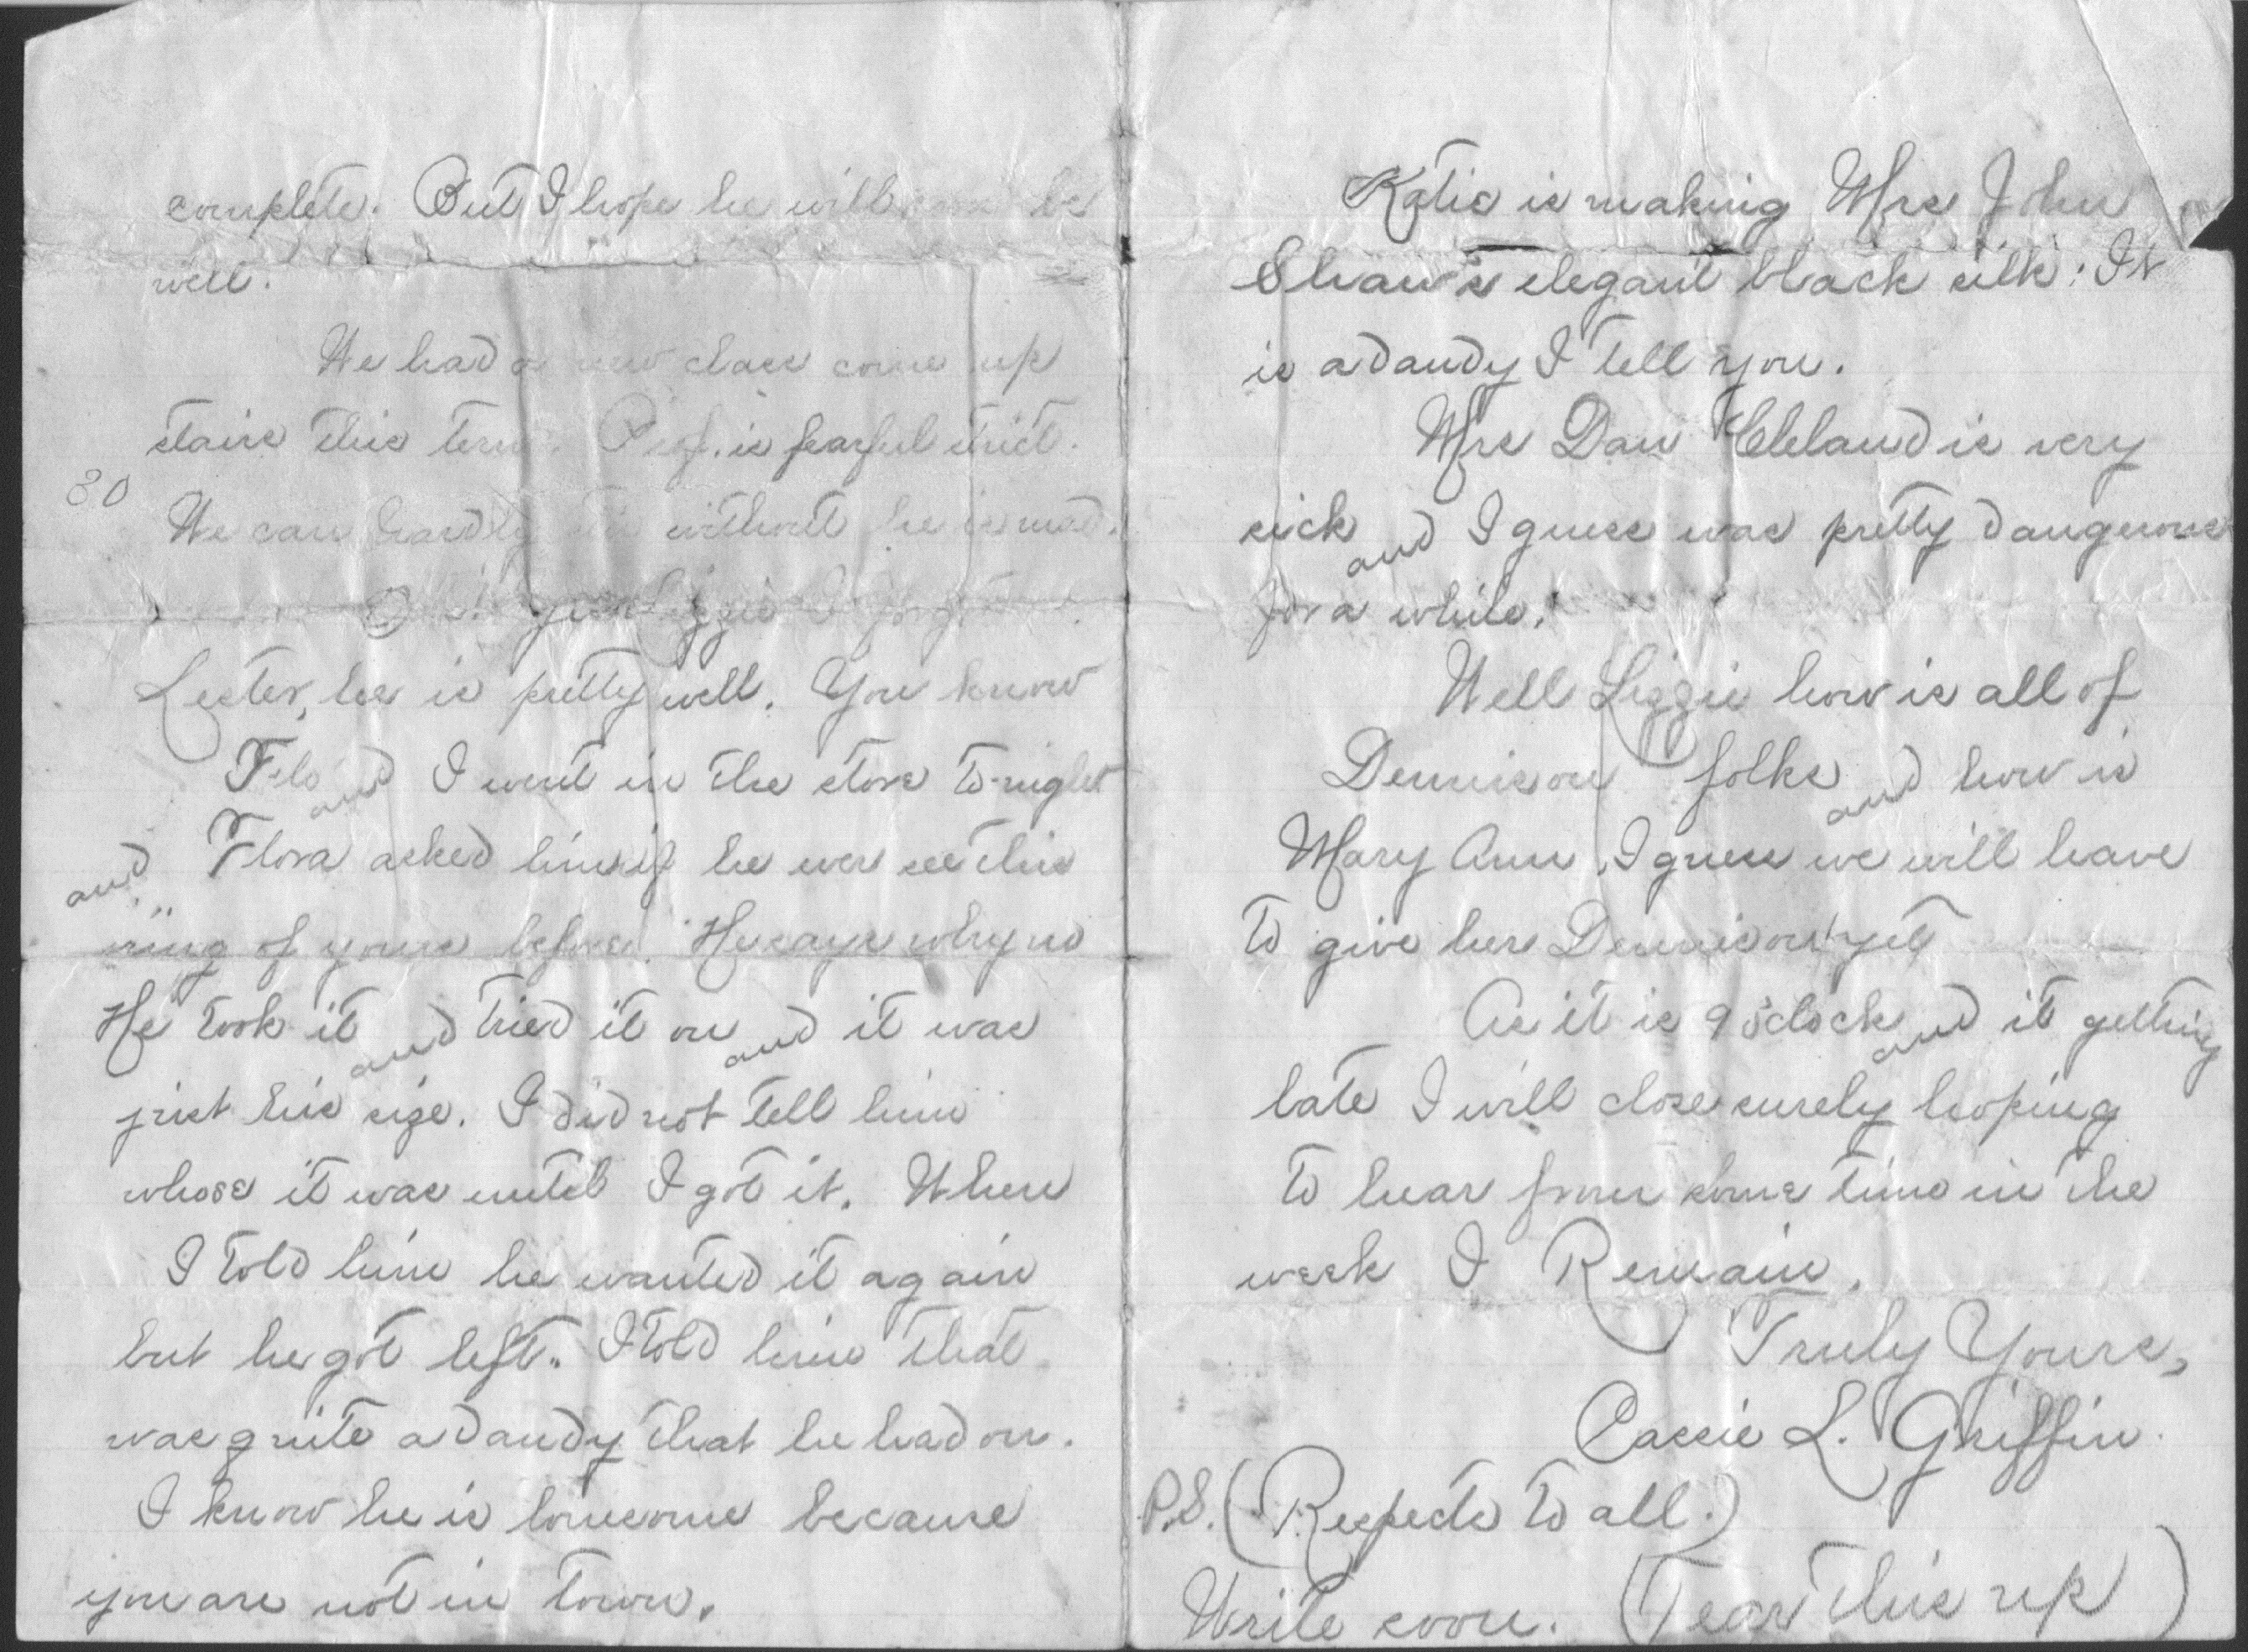 complete. But I hope he will be
well.
We had a new class come up
stairs this term. Prof. is fearful strict.
30
We can hardly without he is mad.
Oh! yes Lizzie I forgot
Lester, he is pretty well. You know
Flo and I went in the store to-night
and Flora asked him if he ever see this
"ring of yours before. He says why no
He took it and tried it on and it was
just his size. I did not tell him
whose it was until I got it. When
I told him he wanted it again
but he got left. I told him that
was quite a dandy that he had on.
I know he is lonesome because
you are not in town.
Katie is making Mrs John
Shaw's elegant black silk: It
is a dandy I tell you.
Mrs Dan Cleland is very
sick and I guess was pretty dangerous
for a while.
Well Lizzie how is all of
Dennison folks and how is
Mary Ann, I guess we will have
to give her Dennison yet
As it is 9 o'clock and it getting
late I will close surely hoping
to hear from some time in the
week I Remain.
Truly Yours,
Cassie L. Griffin.
P.S. (Respects to all.)
Write soon. (Tear this up)